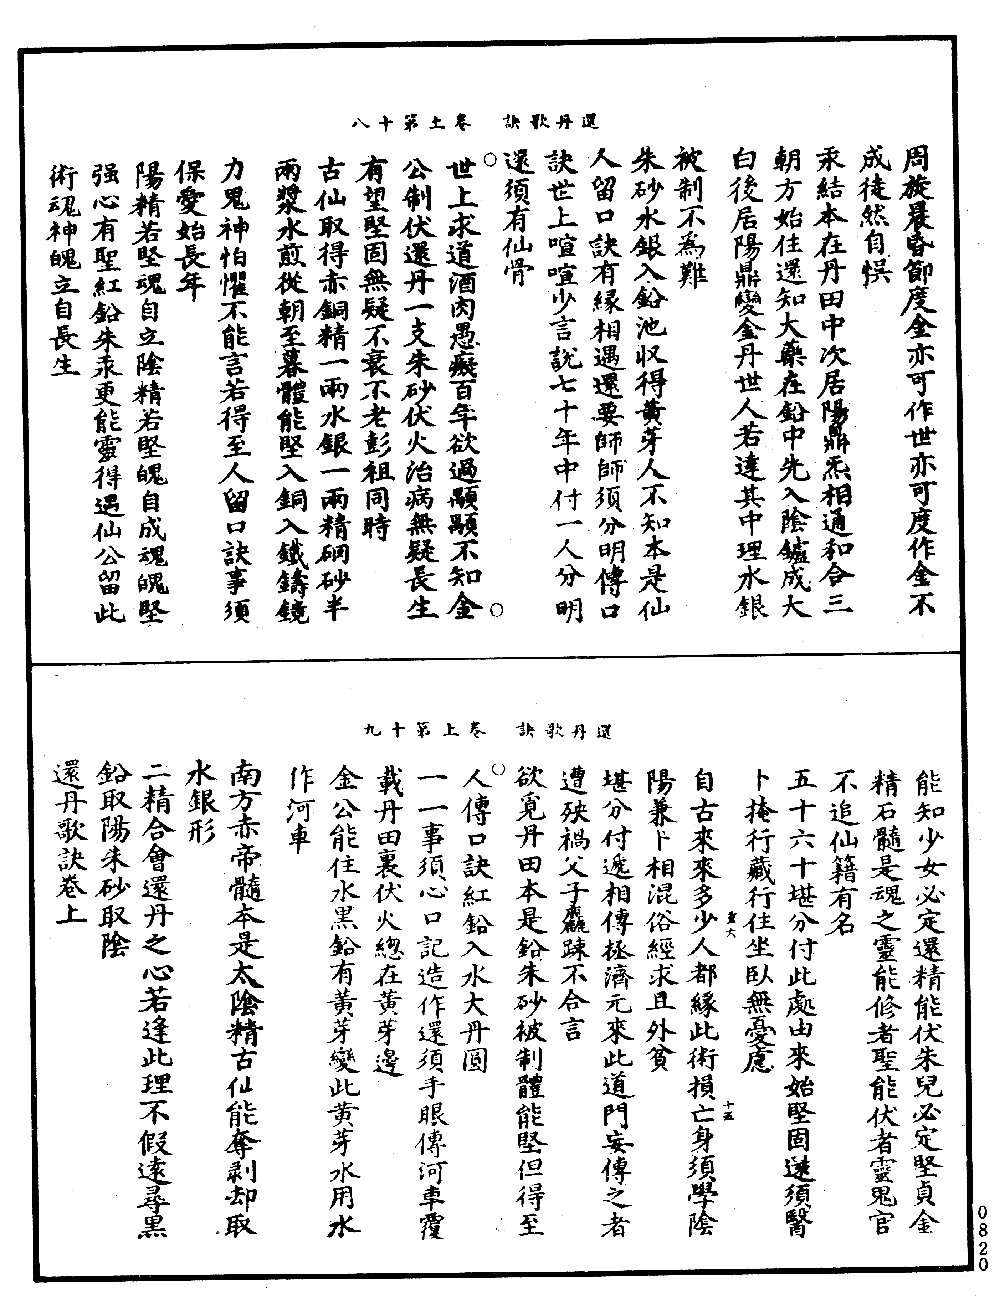 還丹歌訣　卷上第十八
周旋晨昏節度金亦可作世亦可度作金不
成徒然自悞
汞結本在丹田中次居陽鼎炁相通和合三
朝方始住還知大藥在鉛中先入陰鑪成大
白後居陽鼎變金丹世人若達其中理水銀
被制不為難
朱砂水銀入鉛池収得黃芽人不知本是仙
人留口訣有緣相遇還要師師須分明傳口
訣世上喧喧少言說七十年中付一人分明
還須有仙骨
○世上求道酒肉愚癡百年欲過顯顯不知金○
公制伏還丹一支朱砂伏火治病無疑長生
有望堅固無疑不衰不老彭祖同時
古仙取得赤銅精一兩水銀一兩精硇砂半
兩漿水煎從朝至暮體能堅入銅入鐵鑄鏡
力鬼神怕懼不能言若得至人留口訣事須
保愛始長年
陽精若堅魂自立陰精若堅魄自成魂魄堅
强心有聖紅鉛朱汞更能靈得遇仙公留此
術魂神魄立自長生
還丹歌訣　卷上第十九
能知少女必定還精能伏朱兒必定堅貞金
精石髓是魂之靈能修者聖能伏者靈鬼官
不追仙籍有名
五十六十堪分付此處由來始堅固遂須醫
卜掩行藏行住坐臥無憂慮
自古來來多少人都緣此術損亡身須學陰
陽兼卜相混俗經求且外貧
堪分付遞相傳拯濟元來此道門妄傳之者
遭殃禍父子麤踈不合言
欲覓丹田本是鉛朱砂被制體能堅但得至
○人傳口訣紅鉛入水大丹圓
一一事須心口記造作還須手眼傳河車覆
載丹田裏伏火緫在黃芽邊
金公能住水黑鉛有黃芽變此黃芽水用水
作河車
南方赤帝髓本是太陰精古仙能奪剥却取
水銀形
二精合會還丹之心若逢此理不假遠尋黑
鉛取陽朱砂取陰
還丹歌訣卷上
0820